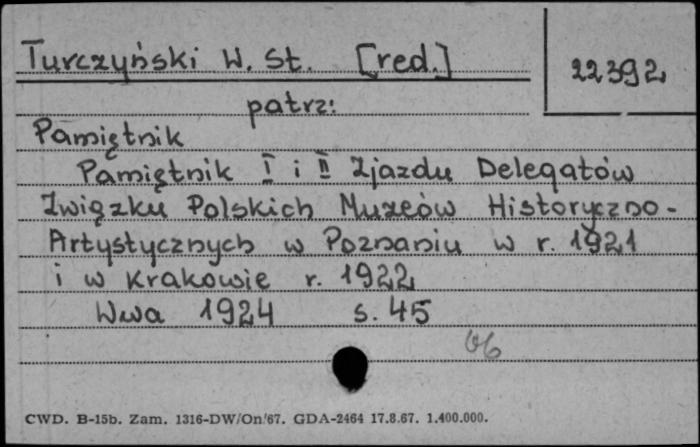 Turczyński W. St. [red.]
22392
patrz:
Pamiętnik
Pamiętnik I i II Zjazdu Delegatów
Związku Polskich Muzeów Historyczno-
Artystycznych w Poznaniu w r. 1921
i w Krakowie r. 1922
Wwa 1924 s. 45
06
CWD. B-15b. Zam. 1316-DW/On/67. GDA-2464 17.8.67. 1.400.000.